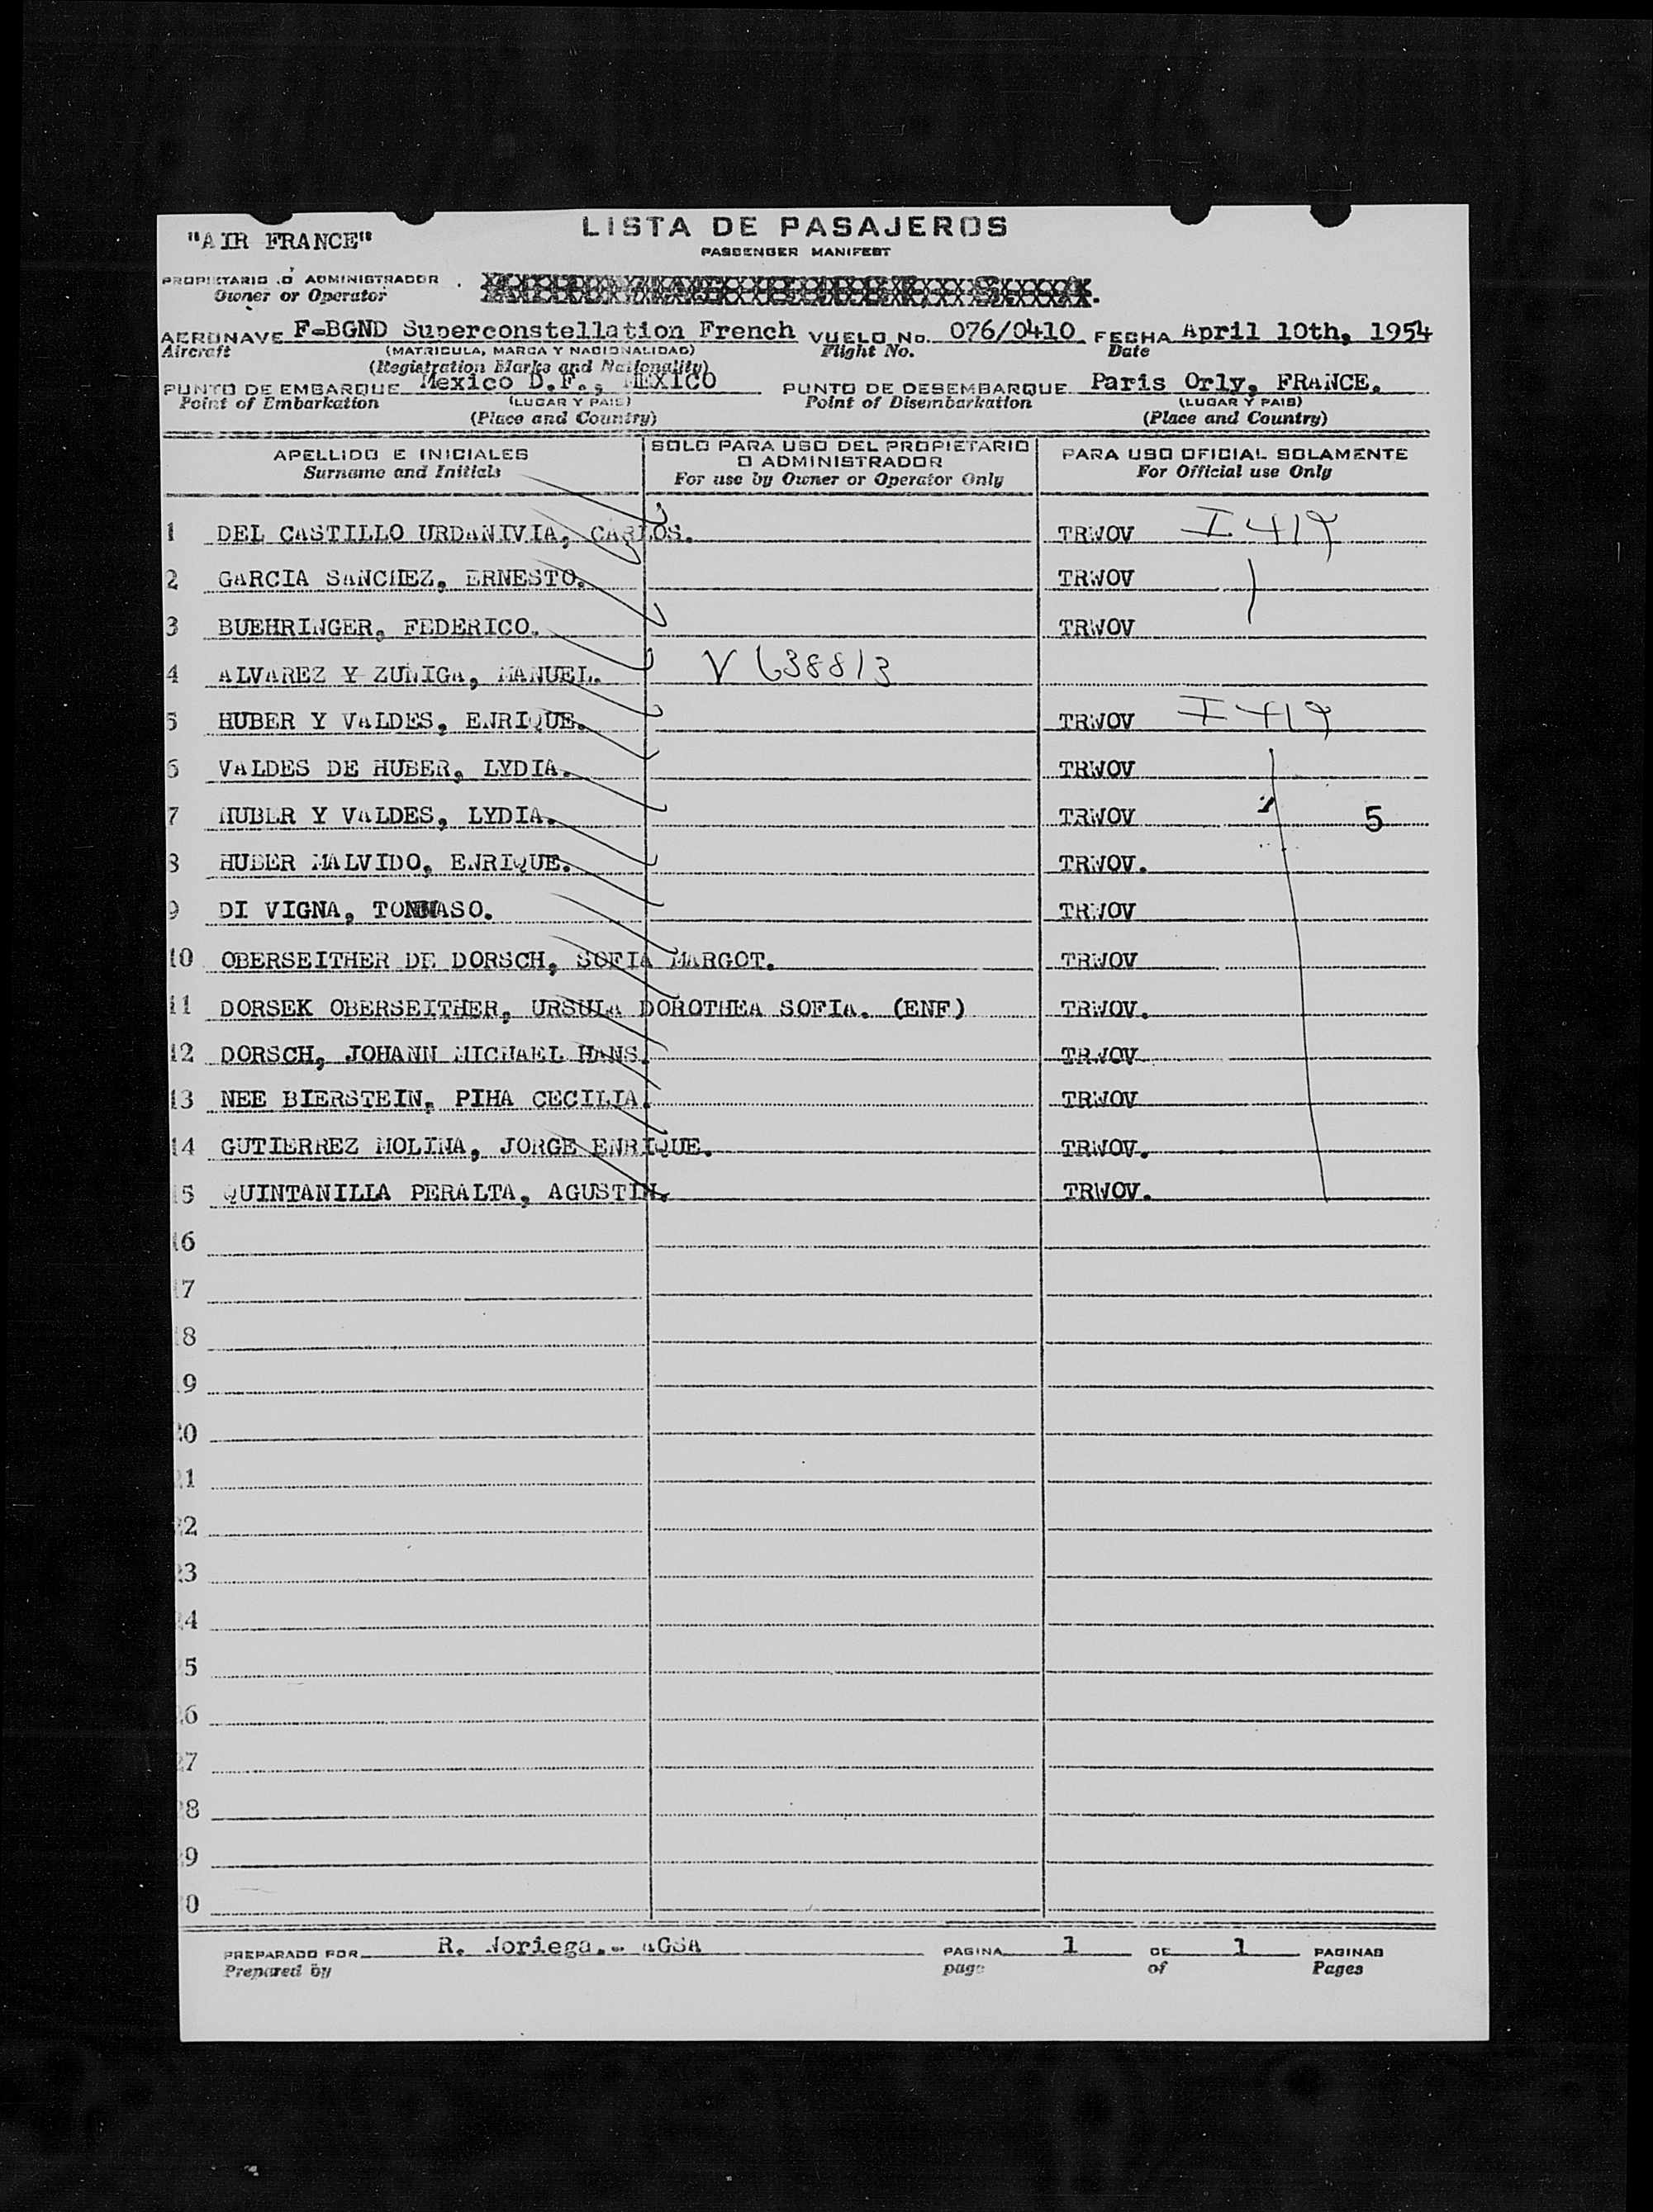 LISTA DE PASAJEROS
"AIR FRANCE"
PASSENGER MANIFEST
PROPIETARIO Ó ADMINISTRADOR
Owner or Operator
AERONAVE F-BGND Superconstellation French VUELO No. 076/0410 FECHA April 10th, 1954
Aircraft (MATRICULA, MARCA Y NACIONALIDAD) Flight No. Date
(Registration Marks and Nationality)
PUNTO DE EMBARQUE Mexico D.F., MEXICO PUNTO DE DESEMBARQUE Paris Orly, FRANCE.
Point of Embarkation (LUGAR Y PAIS) Point of Disembarkation (LUGAR Y PAIS)
(Place and Country) (Place and Country)
APELLIDO E INICIALES SOLO PARA USO DEL PROPIETARIO PARA USO OFICIAL SOLAMENTE
Surname and Initials O ADMINISTRADOR For Official use Only
For use by Owner or Operator Only
1 DEL CASTILLO URDANIVIA, CARLOS. TRWOV I 419
2 GARCIA SANCHEZ, ERNESTO. TRWOV
3 BUEHRINGER, FEDERICO. TRWOV
4 ALVAREZ Y ZUÑIGA, MANUEL. V 638813
5 HUBER Y VALDES, ENRIQUE. TRWOV I 419
6 VALDES DE HUBER, LYDIA. TRWOV
7 HUBER Y VALDES, LYDIA. TRWOV 5
8 HUBER MALVIDO, ENRIQUE. TRWOV.
9 DI VIGNA, TOMMASO. TRWOV
10 OBERSEITHER DE DORSCH, SOFIA MARGOT. TRWOV
11 DORSEK OBERSEITHER, URSULA DOROTHEA SOFIA. (ENF) TRWOV.
12 DORSCH, JOHANN MICHAEL HANS. TRWOV
13 NEE BIERSTEIN, PIHA CECILIA. TRWOV
14 GUTIERREZ MOLINA, JORGE ENRIQUE. TRWOV.
15 QUINTANILLA PERALTA, AGUSTIN. TRWOV.
16
17
18
19
20
21
22
23
24
25
26
27
28
29
30
PREPARADO POR R. Noriega.- AGSA PAGINA 1 DE 1 PAGINAS
Prepared by page of Pages